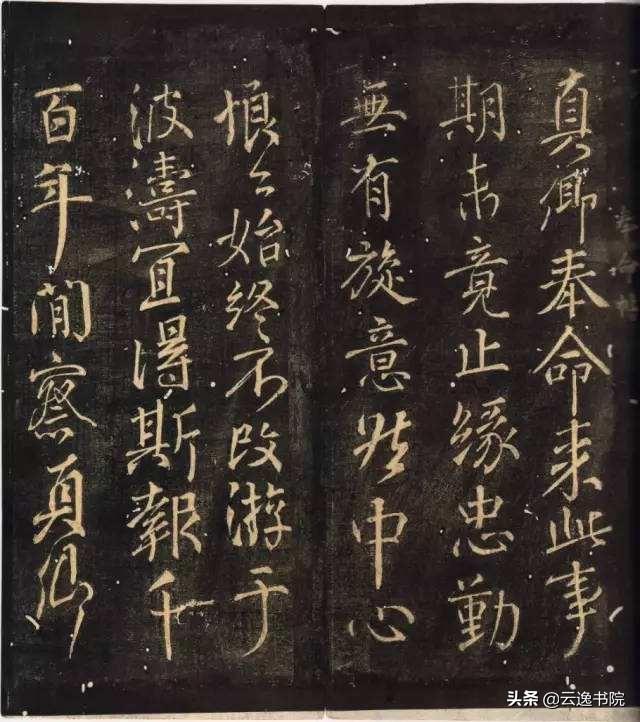 真卿奉命来此事
期未竟止緣忠勤
無有旋意然中心
恨々始終不改游于
波濤宜得斯報千
百年間察真卿
头条 @云逸书院